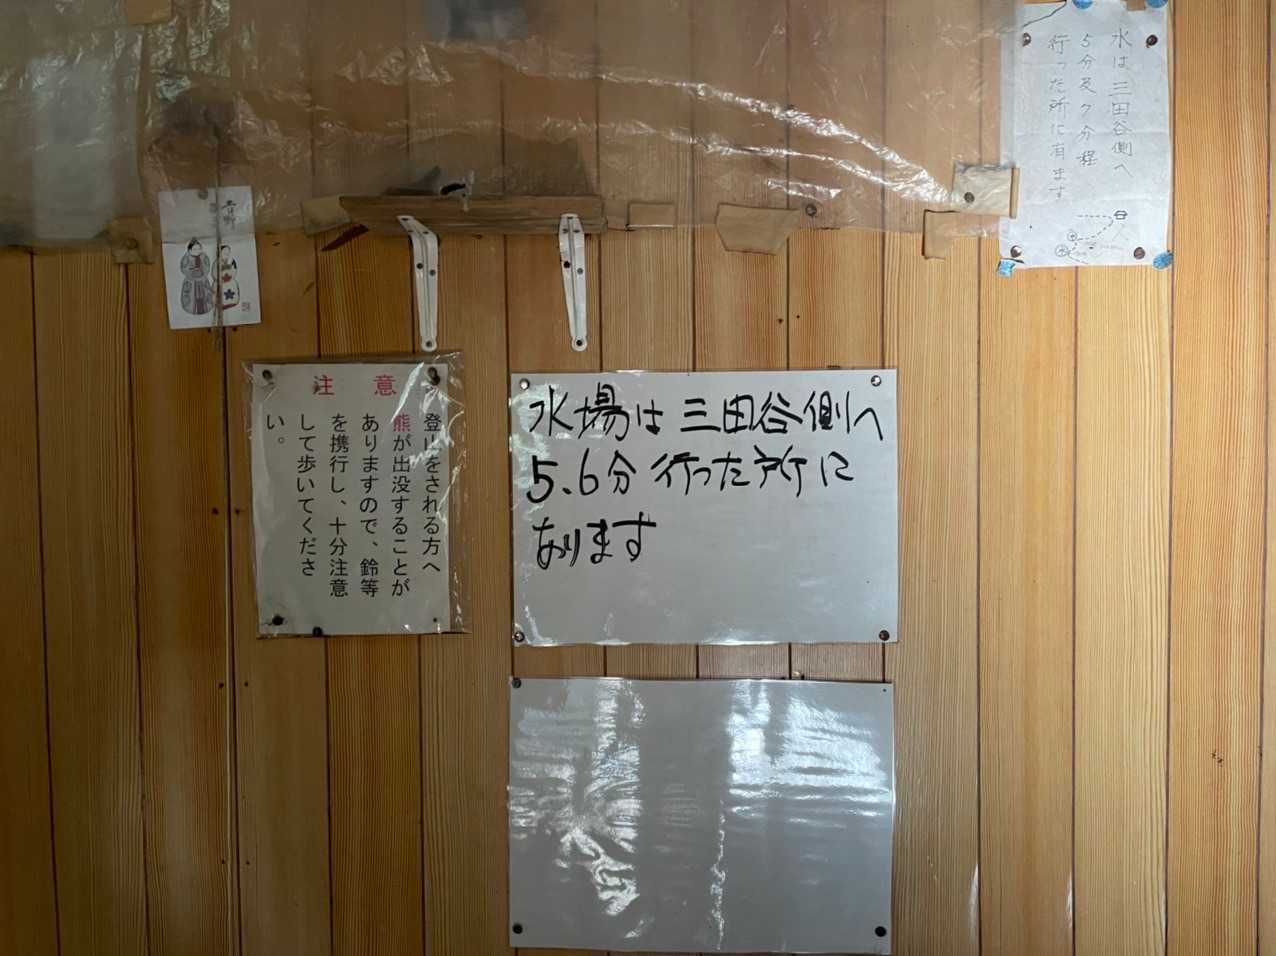 水は三田谷側へ
5分及ク分程
行った所に有ます
注意
登山をされる方へ
熊が出没することが
ありますので、鈴等
を携行し、十分注意
して歩いてくださ
い。
水場は三田谷側へ
5、6分行った所に
あります